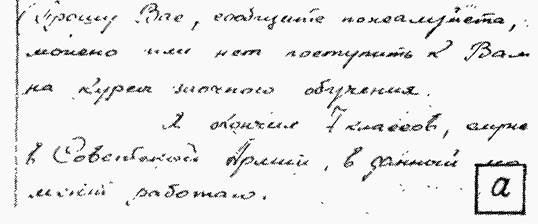 Прошу Вас, сообщите пожалуйста,
можно или нет поступить к Вам
на курсы заочного обучения.
Я окончил 7 классов, служ
в Советской Армии, в данный мо
мент работаю.
а